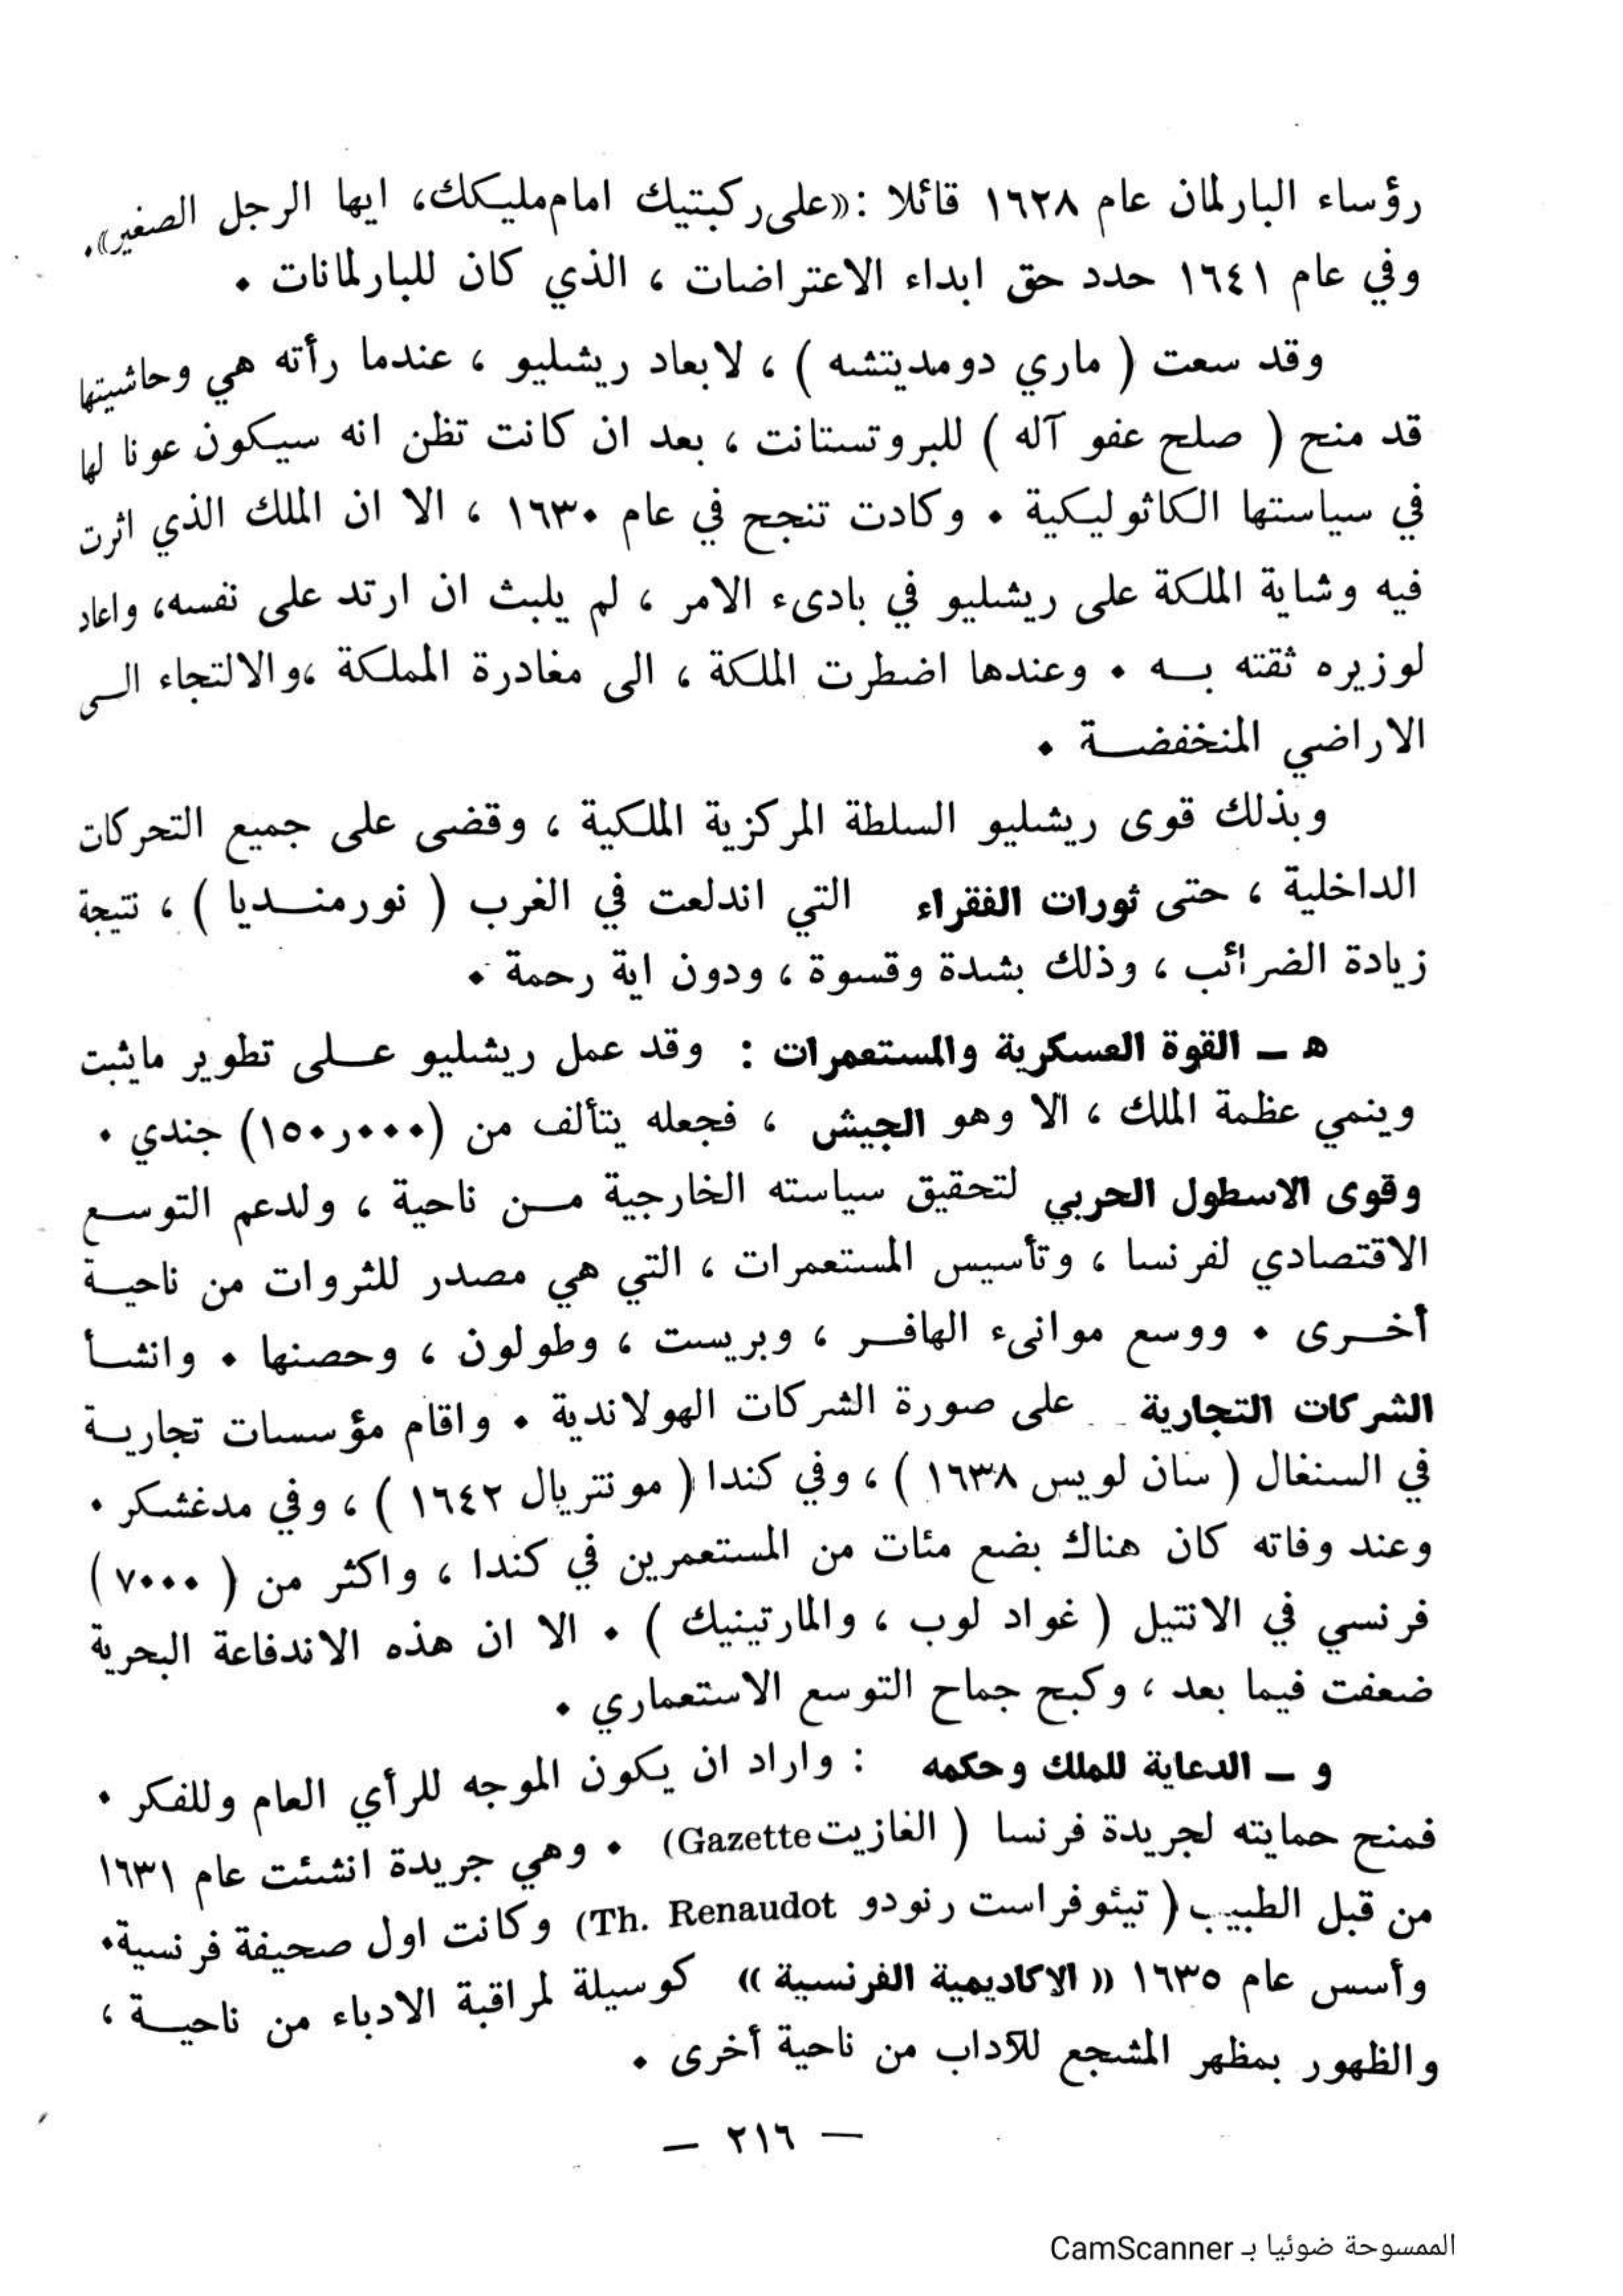 رؤساء البارلمان عام ١٦٢٨ قائلا :«على ركبتيك امام مليكك، ايها الرجل الصغير».
وفي عام ١٦٤١ حدد حق ابداء الاعتراضات ، الذي كان للبارلمانات .
وقد سعت ( ماري دومديتشه ) ، لابعاد ريشليو ، عندما رأته هي وحاشيتها
قد منح ( صلح عفو آله ) للبروتستانت ، بعد ان كانت تظن انه سيكون عونا لها
في سياستها الكاثوليكية . وكادت تنجح في عام ١٦٣٠ ، الا ان الملك الذي اثرت
فيه وشاية الملكة على ريشليو في بادىء الامر ، لم يلبث ان ارتد على نفسه، واعاد
لوزيره ثقته بـه . وعندها اضطرت الملكة ، الى مغادرة المملكة ،والالتجاء الـى
الاراضي المنخفضـة .
وبذلك قوى ريشليو السلطة المركزية الملكية ، وقضى على جميع التحركات
الداخلية ، حتى ثورات الفقراء التي اندلعت في الغرب ( نورمنـديا ) ، نتيجة
زيادة الضرائب ، وذلك بشدة وقسوة ، ودون اية رحمة .
هـ – القوة العسكرية والمستعمرات : وقد عمل ريشليو عـلى تطوير مايثبت
وينمي عظمة الملك ، الا وهو الجيش ، فجعله يتألف من (١٥٠ر٠٠٠) جندي .
وقوى الاسطول الحربي لتحقيق سياسته الخارجية مـن ناحية ، ولدعم التوسـع
الاقتصادي لفرنسا ، وتأسيس المستعمرات ، التي هي مصدر للثروات من ناحيـة
أخـرى . ووسع موانىء الهافـر ، وبريست ، وطولون ، وحصنها . وانشـأ
الشركات التجارية على صورة الشركات الهولاندية . واقام مؤسسات تجاريـة
في السنغال ( سان لويس ١٦٣٨ ) ، وفي كندا ( مونتريال ١٦٤٢ ) ، وفي مدغشكر .
وعند وفاته كان هناك بضع مئات من المستعمرين في كندا ، واكثر من ( ٧٠٠٠ )
فرنسي في الانتيل ( غواد لوب ، والمارتينيك ) . الا ان هذه الاندفاعة البحرية
ضعفت فيما بعد ، وكبح جماح التوسع الاستعماري .
و – الدعاية للملك وحكمه : واراد ان يكون الموجه للرأي العام وللفكر .
فمنح حمايته لجريدة فرنسا ( الغازيت Gazette) . وهي جريدة انشئت عام ١٦٣١
من قبل الطبيب ( تيئوفراست رنودو Th. Renaudot) وكانت اول صحيفة فرنسية.
وأسس عام ١٦٣٥ « الاكاديمية الفرنسية » كوسيلة لمراقبة الادباء من ناحيـة ،
والظهور بمظهر المشجع للآداب من ناحية أخرى .
— ٢١٦ —
الممسوحة ضوئيا بـ CamScanner